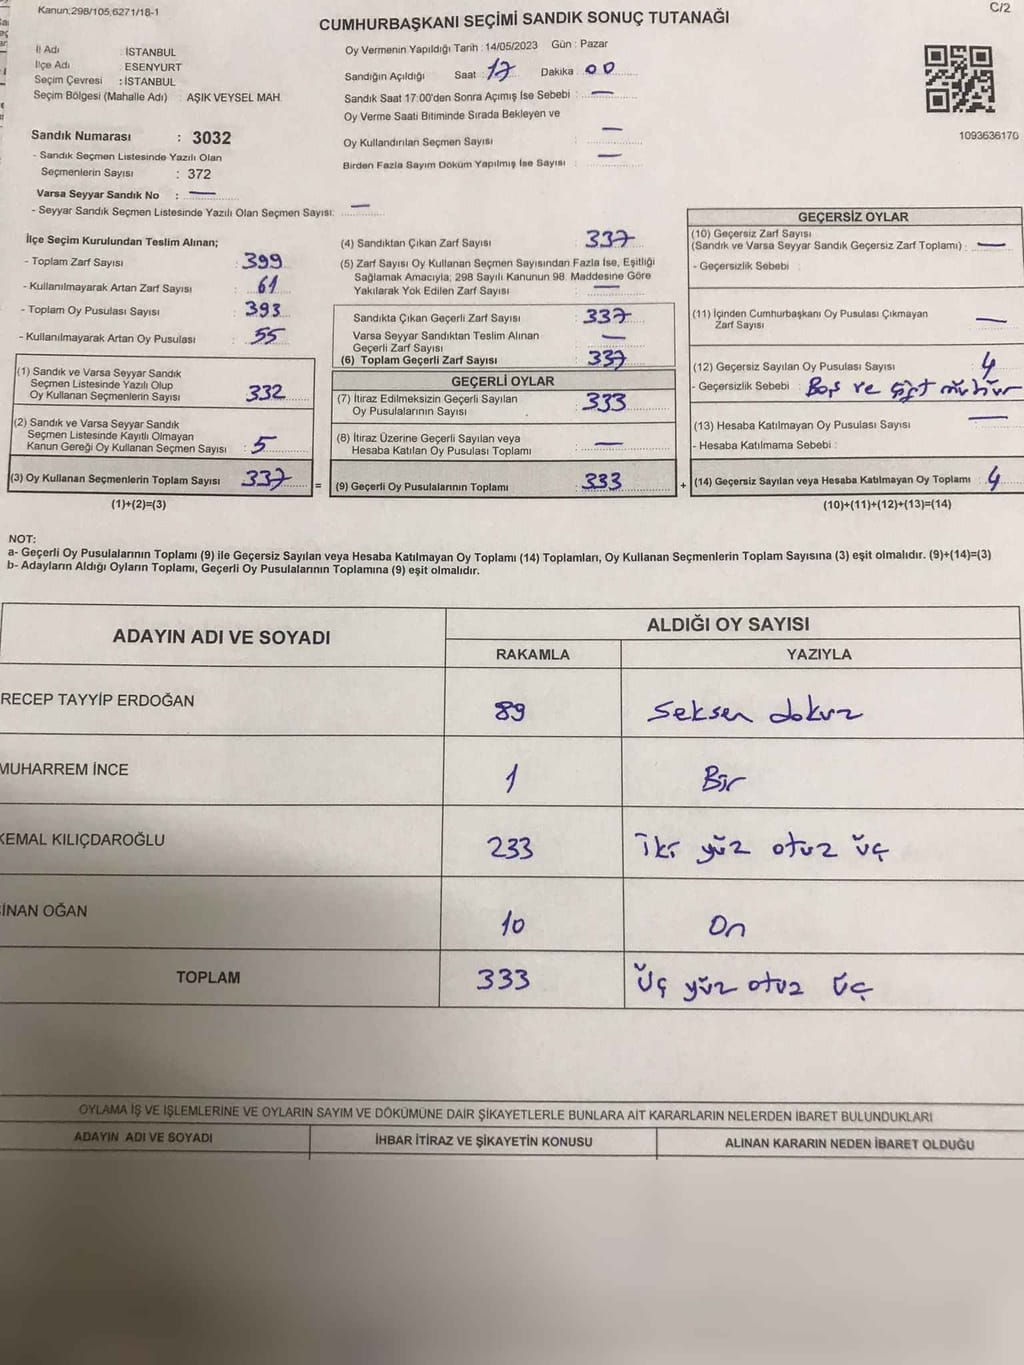 Kanun,298/105,6271/18-1
C/2
CUMHURBAŞKANI SEÇİMİ SANDIK SONUÇ TUTANAĞI
İl Adı : İSTANBUL
İlçe Adı : ESENYURT
Seçim Çevresi : İSTANBUL
Seçim Bölgesi (Mahalle Adı) : AŞIK VEYSEL MAH.
Oy Vermenin Yapıldığı Tarih : 14/05/2023 Gün : Pazar
Sandığın Açıldığı Saat : 17 Dakika : 00
Sandık Saat 17:00'den Sonra Açımış İse Sebebi : —
Oy Verme Saati Bitiminde Sırada Bekleyen ve
Oy Kullandırılan Seçmen Sayısı : —
Birden Fazla Sayım Döküm Yapılmış İse Sayısı : —
1093636170
Sandık Numarası : 3032
- Sandık Seçmen Listesinde Yazılı Olan
Seçmenlerin Sayısı : 372
Varsa Seyyar Sandık No : —
- Seyyar Sandık Seçmen Listesinde Yazılı Olan Seçmen Sayısı: —
İlçe Seçim Kurulundan Teslim Alınan;
- Toplam Zarf Sayısı : 399
- Kullanılmayarak Artan Zarf Sayısı : 61
- Toplam Oy Pusulası Sayısı : 393
- Kullanılmayarak Artan Oy Pusulası : 55
(1) Sandık ve Varsa Seyyar Sandık
Seçmen Listesinde Yazılı Olup
Oy Kullanan Seçmenlerin Sayısı : 332
(2) Sandık ve Varsa Seyyar Sandık
Seçmen Listesinde Kayıtlı Olmayan
Kanun Gereği Oy Kullanan Seçmen Sayısı : 5
(3) Oy Kullanan Seçmenlerin Toplam Sayısı : 337 =
(1)+(2)=(3)
(4) Sandıktan Çıkan Zarf Sayısı : 337
(5) Zarf Sayısı Oy Kullanan Seçmen Sayısından Fazla İse, Eşitliği
Sağlamak Amacıyla; 298 Sayılı Kanunun 98. Maddesine Göre
Yakılarak Yok Edilen Zarf Sayısı : —
Sandıkta Çıkan Geçerli Zarf Sayısı : 337
Varsa Seyyar Sandıktan Teslim Alınan
Geçerli Zarf Sayısı : —
(6) Toplam Geçerli Zarf Sayısı : 337
GEÇERLİ OYLAR
(7) İtiraz Edilmeksizin Geçerli Sayılan
Oy Pusulalarının Sayısı : 333
(8) İtiraz Üzerine Geçerli Sayılan veya
Hesaba Katılan Oy Pusulası Toplamı : —
(9) Geçerli Oy Pusulalarının Toplamı : 333 +
GEÇERSİZ OYLAR
(10) Geçersiz Zarf Sayısı
(Sandık ve Varsa Seyyar Sandık Geçersiz Zarf Toplamı) : —
- Geçersizlik Sebebi :
(11) İçinden Cumhurbaşkanı Oy Pusulası Çıkmayan
Zarf Sayısı : —
(12) Geçersiz Sayılan Oy Pusulası Sayısı : 4
- Geçersizlik Sebebi : Boş ve çift mühür
(13) Hesaba Katılmayan Oy Pusulası Sayısı : —
- Hesaba Katılmama Sebebi :
(14) Geçersiz Sayılan veya Hesaba Katılmayan Oy Toplamı : 4
(10)+(11)+(12)+(13)=(14)
NOT:
a- Geçerli Oy Pusulalarının Toplamı (9) ile Geçersiz Sayılan veya Hesaba Katılmayan Oy Toplamı (14) Toplamları, Oy Kullanan Seçmenlerin Toplam Sayısına (3) eşit olmalıdır. (9)+(14)=(3)
b- Adayların Aldığı Oyların Toplamı, Geçerli Oy Pusulalarının Toplamına (9) eşit olmalıdır.
ADAYIN ADI VE SOYADI ALDIĞI OY SAYISI
RAKAMLA YAZIYLA
RECEP TAYYİP ERDOĞAN 89 Seksen dokuz
MUHARREM İNCE 1 Bir
KEMAL KILIÇDAROĞLU 233 iki yüz otuz üç
İNAN OĞAN 10 On
TOPLAM 333 Üç yüz otuz üç
OYLAMA İŞ VE İŞLEMLERİNE VE OYLARIN SAYIM VE DÖKÜMÜNE DAİR ŞİKAYETLERLE BUNLARA AİT KARARLARIN NELERDEN İBARET BULUNDUKLARI
ADAYIN ADI VE SOYADI İHBAR İTİRAZ VE ŞİKAYETİN KONUSU ALINAN KARARIN NEDEN İBARET OLDUĞU